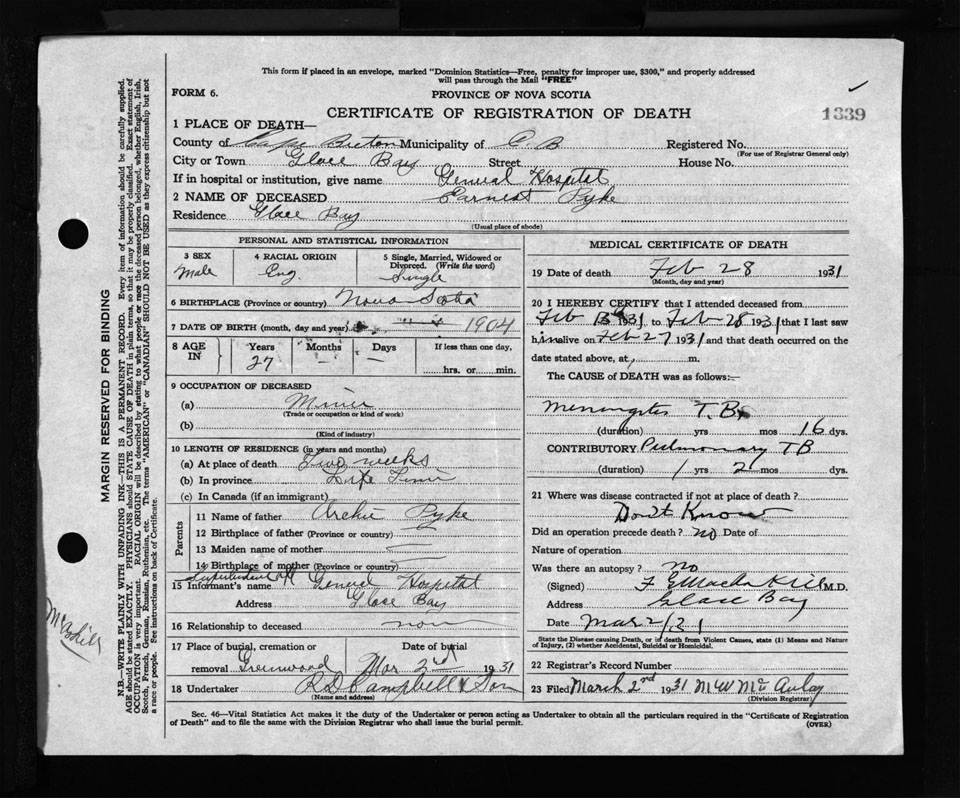 This form if placed in an envelope, marked "Dominion Statistics—Free, penalty for improper use, $300," and properly addressed
will pass through the Mail "FREE"
FORM 6.
PROVINCE OF NOVA SCOTIA
CERTIFICATE OF REGISTRATION OF DEATH
1339
1 PLACE OF DEATH—
County of Cape Breton Municipality of C. B Registered No.
(For use of Registrar General only)
City or Town Glace Bay Street House No.
If in hospital or institution, give name General Hospital
2 NAME OF DECEASED Earnest Pyke
Residence Glace Bay
(Usual place of abode)
PERSONAL AND STATISTICAL INFORMATION
3 SEX
Male
4 RACIAL ORIGIN
Eng.
5 Single, Married, Widowed or
Divorced. (Write the word)
Single
6 BIRTHPLACE (Province or country) Nova Scotia
7 DATE OF BIRTH (month, day and year) 1904
8 AGE
IN
Years
27
Months
—
Days
—
If less than one day,
hrs. or min.
9 OCCUPATION OF DECEASED
(a) Miner
(Trade or occupation or kind of work)
(b)
(Kind of industry)
10 LENGTH OF RESIDENCE (in years and months)
(a) At place of death Two weeks
(b) In province Life Time
(c) In Canada (if an immigrant)
Parents
11 Name of father Archie Pyke
12 Birthplace of father (Province or country)
13 Maiden name of mother
14 Birthplace of mother (Province or country)
Superintendent of
15 Informant's name General Hospital
Address Glace Bay
16 Relationship to deceased none
17 Place of burial, cremation or
removal Greenwood
Date of burial
Mar 2nd 1931
18 Undertaker R D Campbell & Son
(Name and address)
MEDICAL CERTIFICATE OF DEATH
19 Date of death Feb 28 1931
(Month, day and year)
20 I HEREBY CERTIFY that I attended deceased from
Feb 13th 1931 to Feb 28 1931 that I last saw
him alive on Feb 27 1931 and that death occurred on the
date stated above, at m.
The CAUSE of DEATH was as follows:—
Meningitis T. B.
(duration) yrs mos 16 dys.
CONTRIBUTORY Pulmonary TB
(duration) 1 yrs 2 mos dys.
21 Where was disease contracted if not at place of death?
Don't Know
Did an operation precede death? no Date of
Nature of operation
Was there an autopsy? no
(Signed) M.D.
Address Glace Bay
Date Mar 2/31
State the Disease causing Death, or if death from Violent Causes, state (1) Means and Nature
of Injury, (2) whether Accidental, Suicidal or Homicidal.
22 Registrar's Record Number
23 Filed March 2nd 1931 M W McAulay
(Division Registrar)
Sec. 46—Vital Statistics Act makes it the duty of the Undertaker or person acting as Undertaker to obtain all the particulars required in the "Certificate of Registration
of Death" and to file the same with the Division Registrar who shall issue the burial permit.
(OVER)
MARGIN RESERVED FOR BINDING
N.B.—WRITE PLAINLY WITH UNFADING INK—THIS IS A PERMANENT RECORD. Every item of information should be carefully supplied.
AGE should be stated EXACTLY. PHYSICIANS should STATE CAUSE OF DEATH in plain terms, so that it may be properly classified. Exact statement of
OCCUPATION is very important. RACIAL ORIGIN will be described by stating to what people or race the deceased person belonged, whether English, Irish,
Scotch, French, German, Russian, Ruthenian, etc. The terms "AMERICAN" or "CANADIAN" SHOULD NOT BE USED as they express citizenship but not
a race or people. See instructions on back of Certificate.